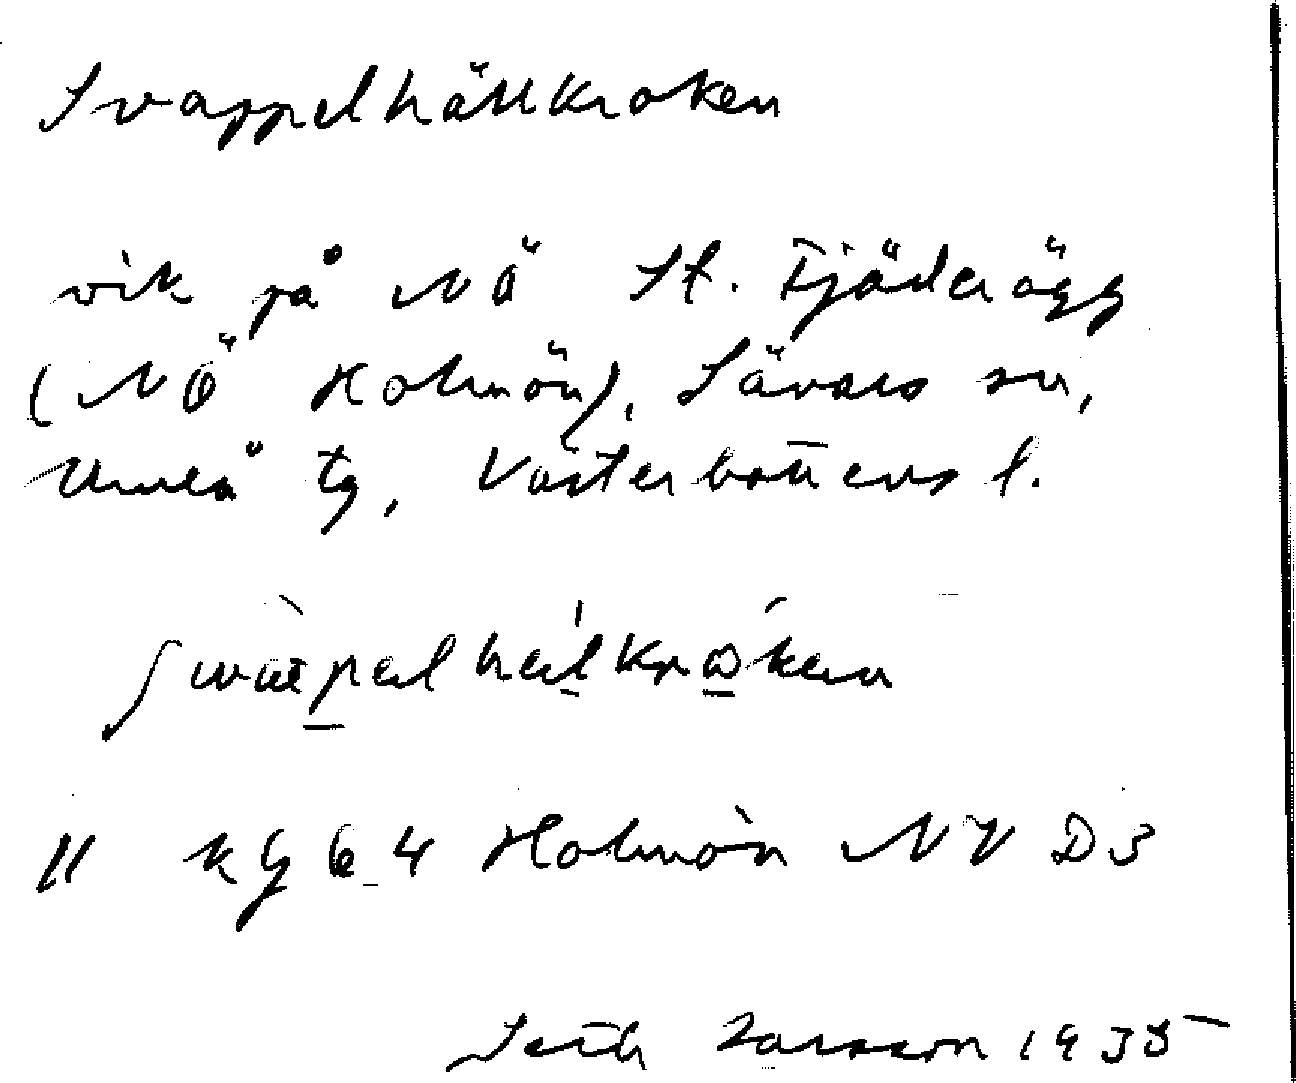 Svappelhällkroken
vik på NÖ St. Fjäderägg
(NÖ Holmön), Sävars sn,
Umeå tg, Västerbottens l.
kg 64 Holmön NV D3
Seth Larsson 1935